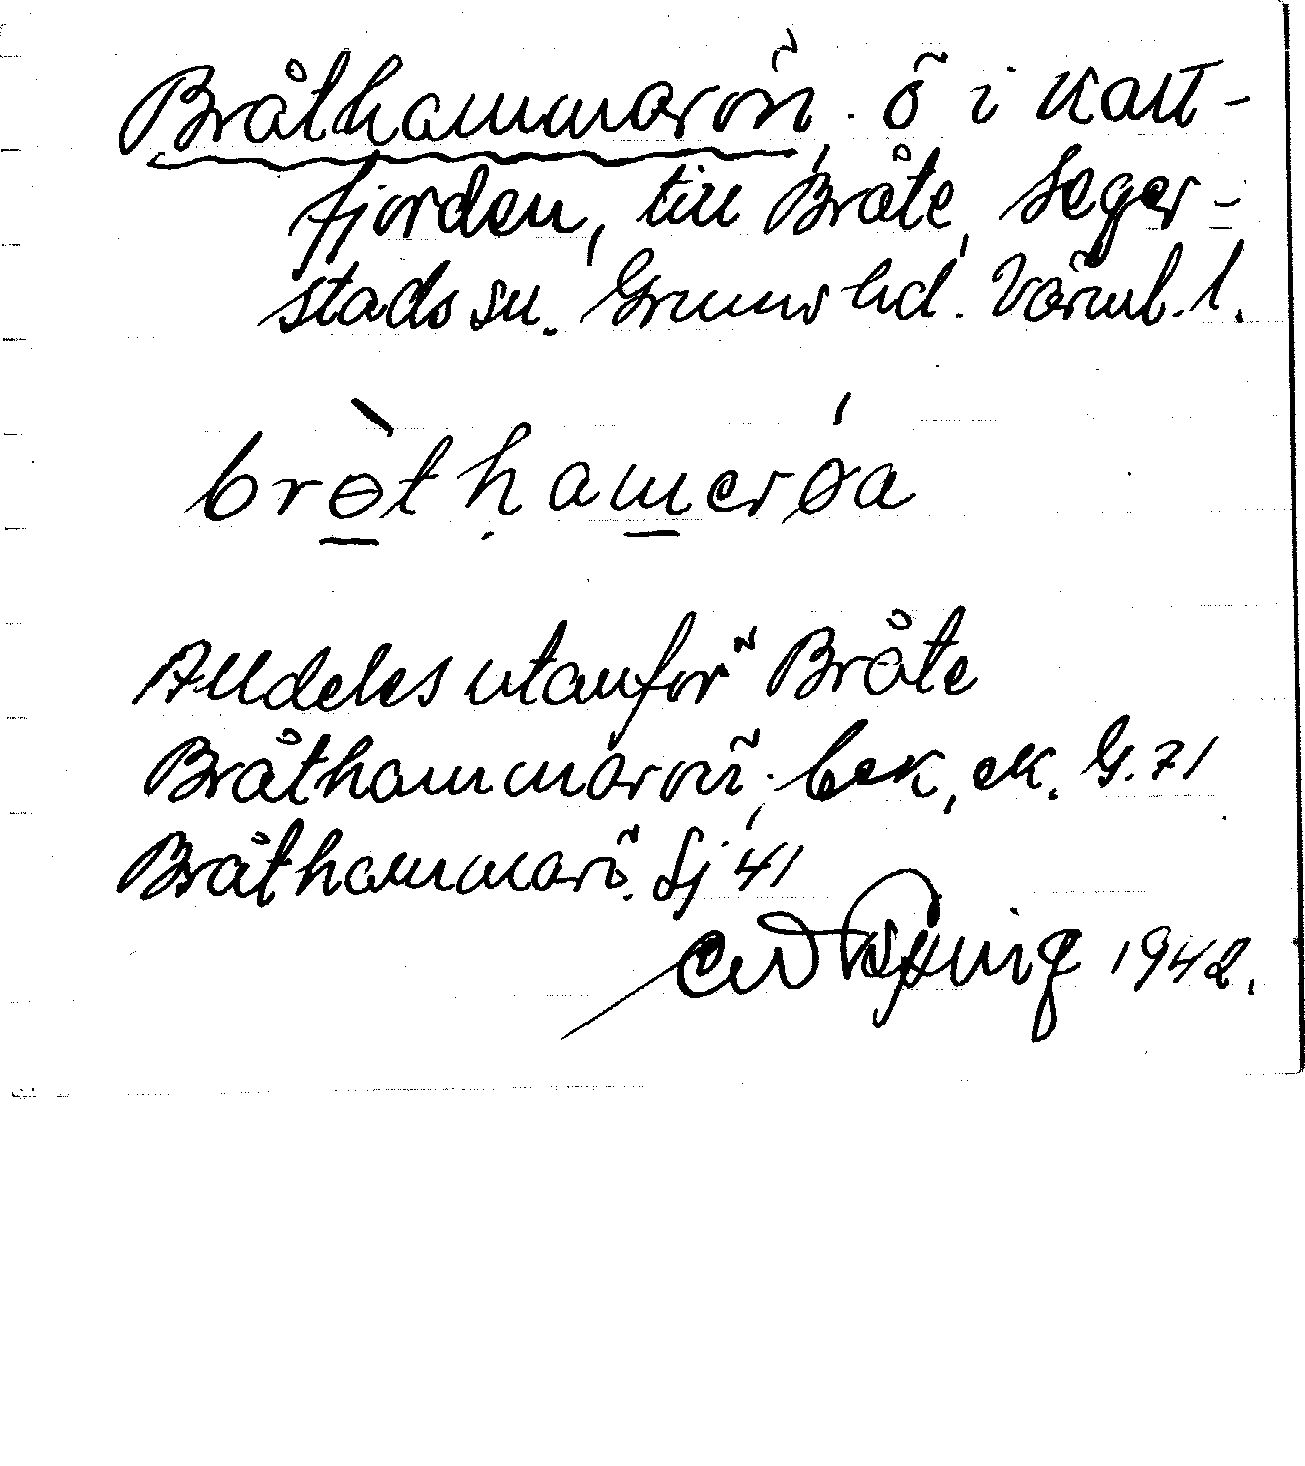 Bråthammarön, ö i Katt-
fjorden, till Bråte, Seger-
stads sn. Grums hd. Värml. l.
brɵ̀thamerǿa
Alldeles utanför Bråte
Bråthammarön, bek, ek. G. 71
Bråthammarö. Sj 41
1942.